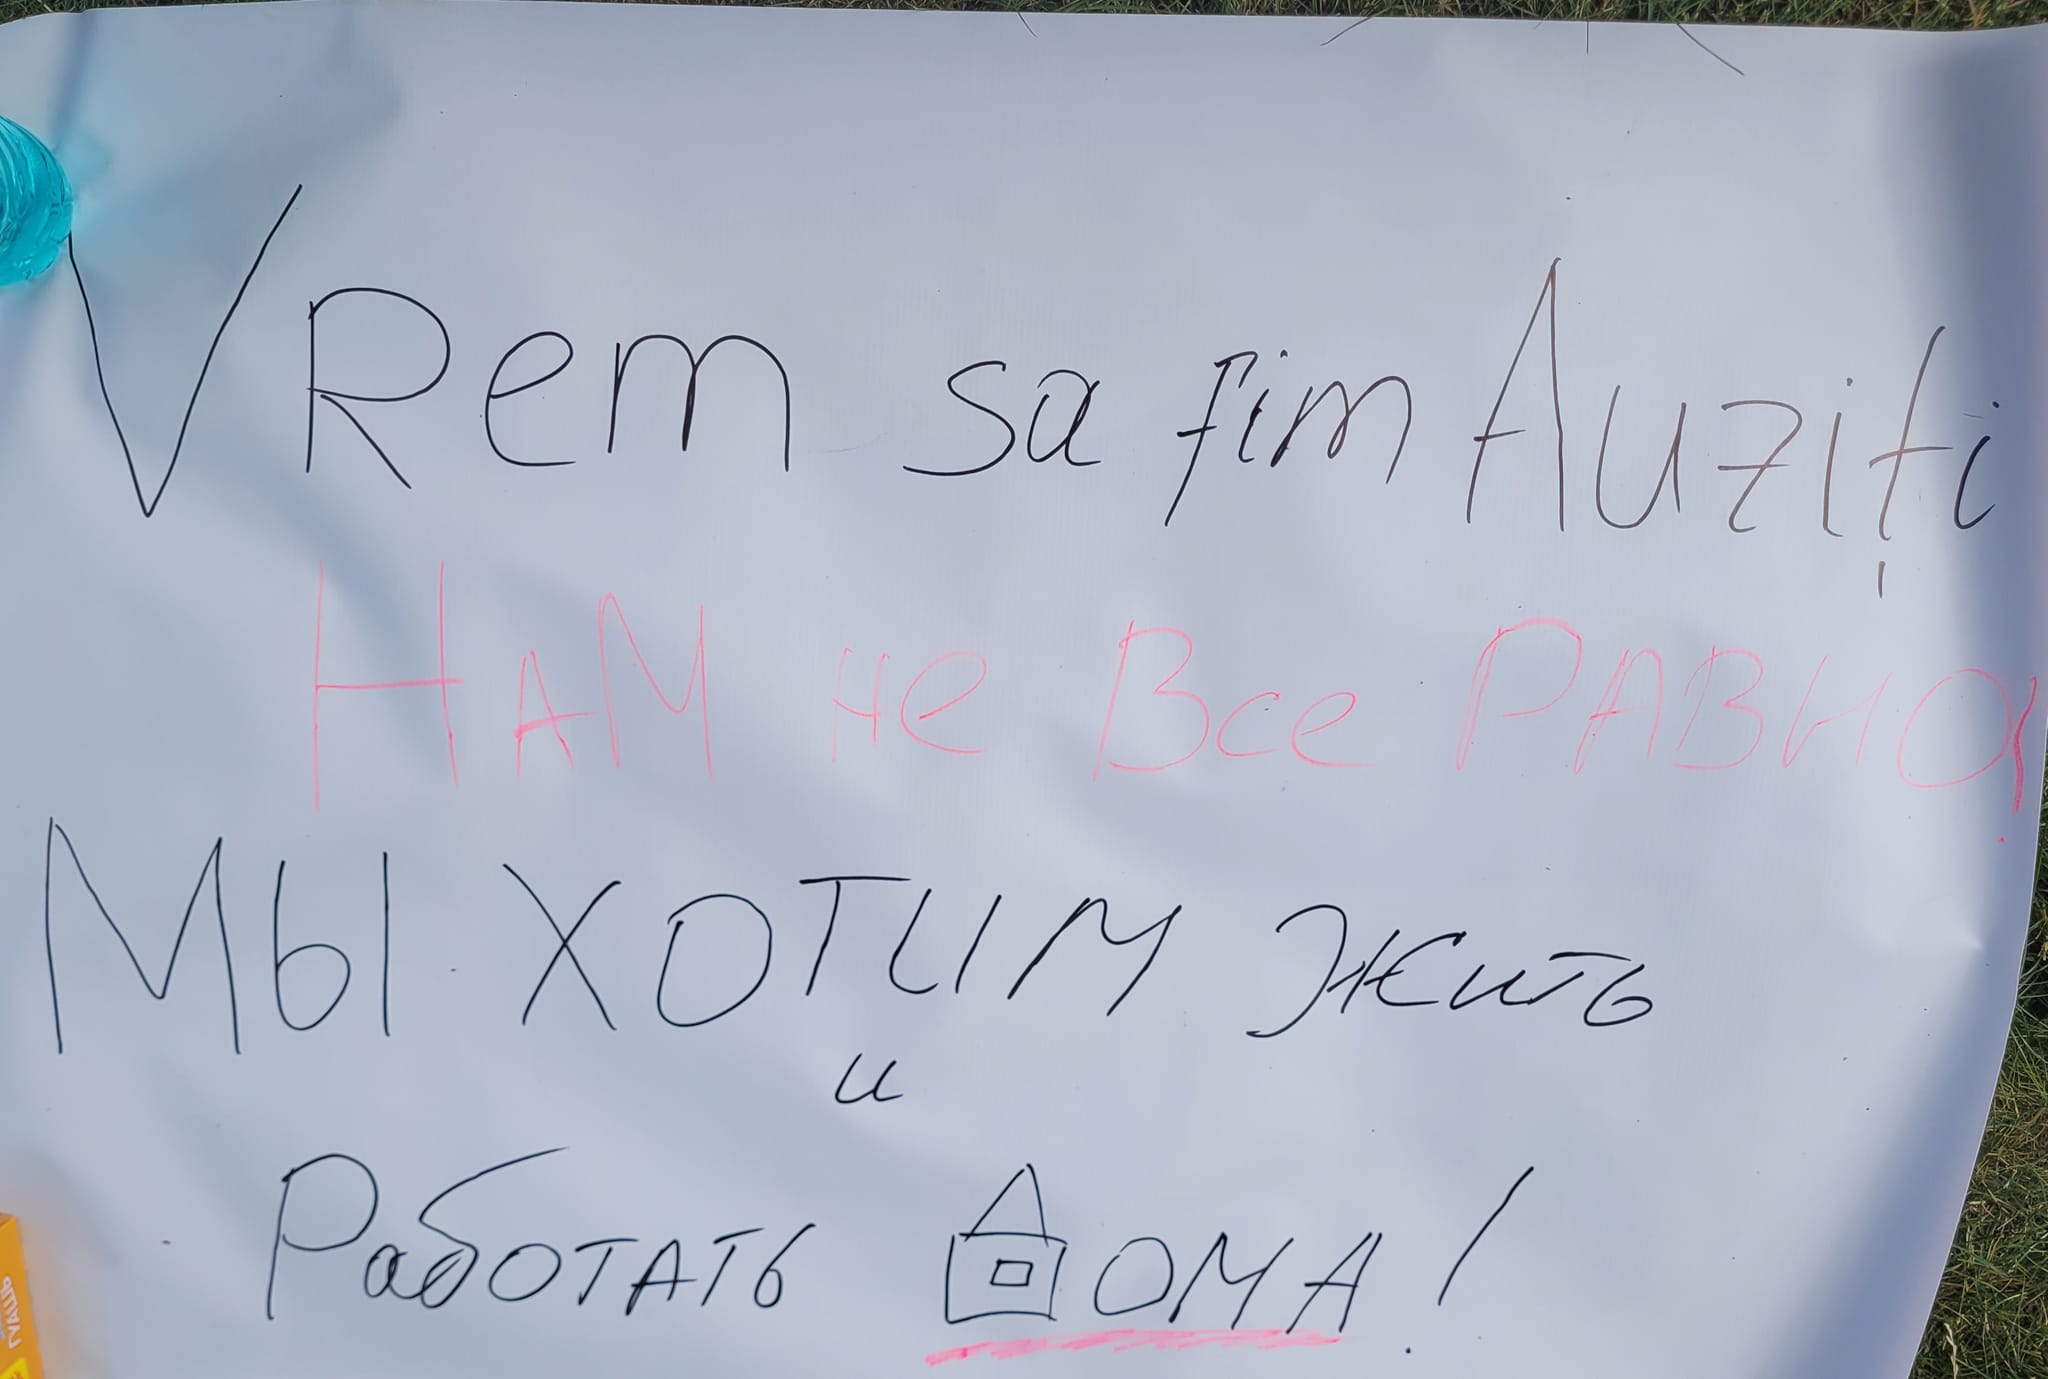 VRem sa fim Auziți
НАМ не Все РАВНО!
МЫ ХОТИМ жить
и
Работать ДОМА!
ГУАШЬ